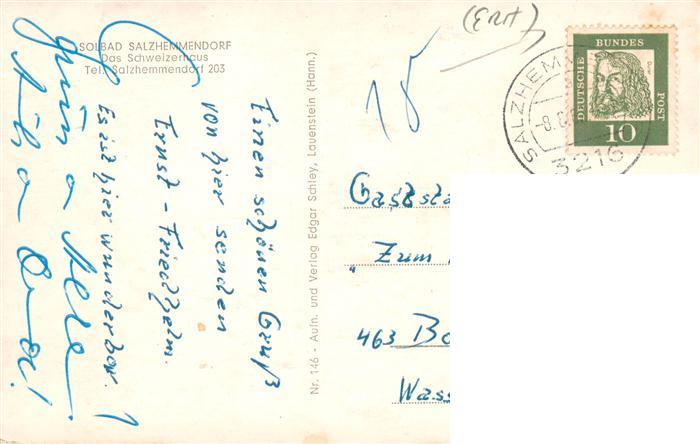 SOLBAD SALZHEMMENDORF
Das Schweizerhaus
Tel. Salzhemmendorf 203
Einen schönen Gruß
von hier senden
Ernst - Friedhelm.
Es ist hier wunderbar.
Nr. 146 - Aufn. und Verlag Edgar Schley, Lauenstein (Hann.)
DEUTSCHE
BUNDES
POST
Dürer
10
SALZHEM
-8.
3216
Gastst
"Zum
463 Bo
Wass